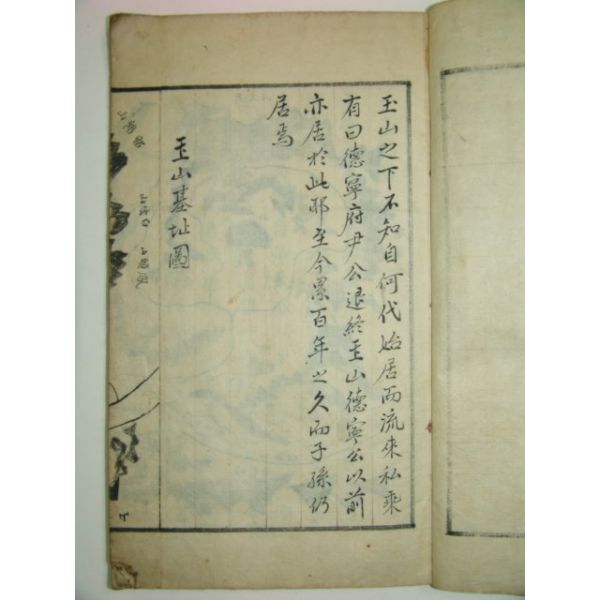 玉山之下不知自何代始居而流來私乘
有曰德寧府尹公退終玉山德寧公以前
亦居於此耶至今累百年之久而子孫仍
居焉
玉山基址圖